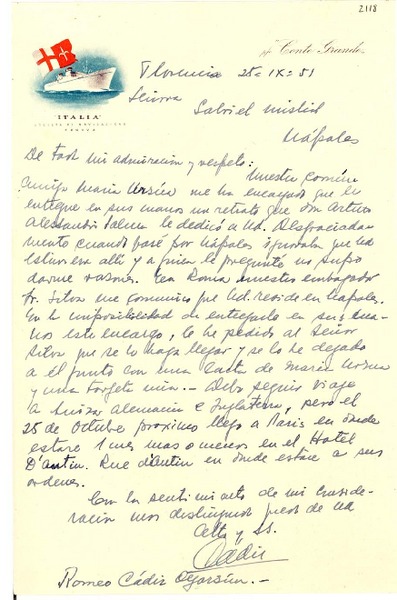 2118
"Conte Grande"
"ITALIA"
SOCIETÀ DI NAVIGAZIONE
GENOVA
Florencia 25 - IX - 51
Señora
Gabriel Mistral
Nápoles
De toda mi admiración y respeto:
Nuestro común
amigo María Ursúa me ha encargado que le
entregue en sus manos un retrato que don Arturo
Alessandri Palma le dedicó a Ud. Desgraciada-
mente cuando pasé por Nápoles ignoraba que Ud
estuviera allí y a quien le pregunté no supo
darme razones. En Roma nuestro embajador
Sr. Silva me comunicó que Ud. reside en Nápoles.
En la imposibilidad de entregarlo en sus ma-
nos este encargo, le he pedido al Señor
Silva que se lo haga llegar y se lo he dejado
a él junto con una carta de María Ursúa
y una tarjeta mía. - Debo seguir viaje
a Suiza Alemania e Inglaterra, pero el
25 de Octubre próximo llego a París en donde
estaré 1 mes mas o menos en el Hotel
D'Antin. Rue d'Antin en donde estaré a sus
ordenes.
Con la sentimiento de mi conside-
ración mas distinguida quedo de Ud
Atto y SS.
Cádiz
Romeo Cádiz Oyarzún. -